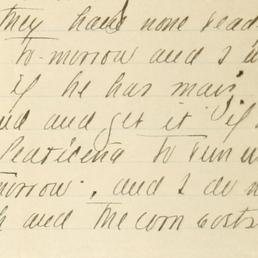 they have none read
to-morrow and I w
if he has mais
and and get it if
to run
morrow. and I do n
h and the corn costs